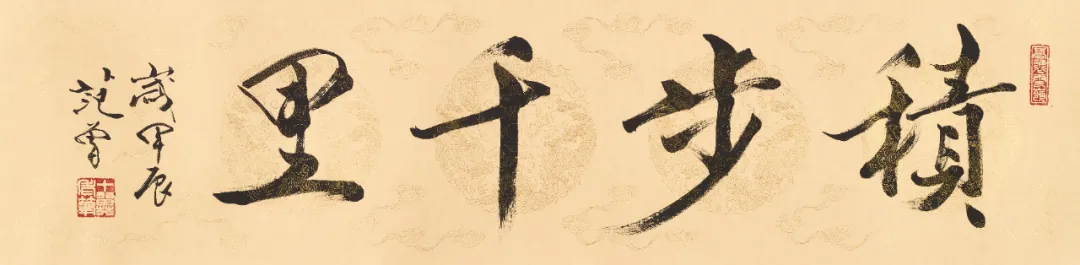 積步千里
歲甲辰
范曾